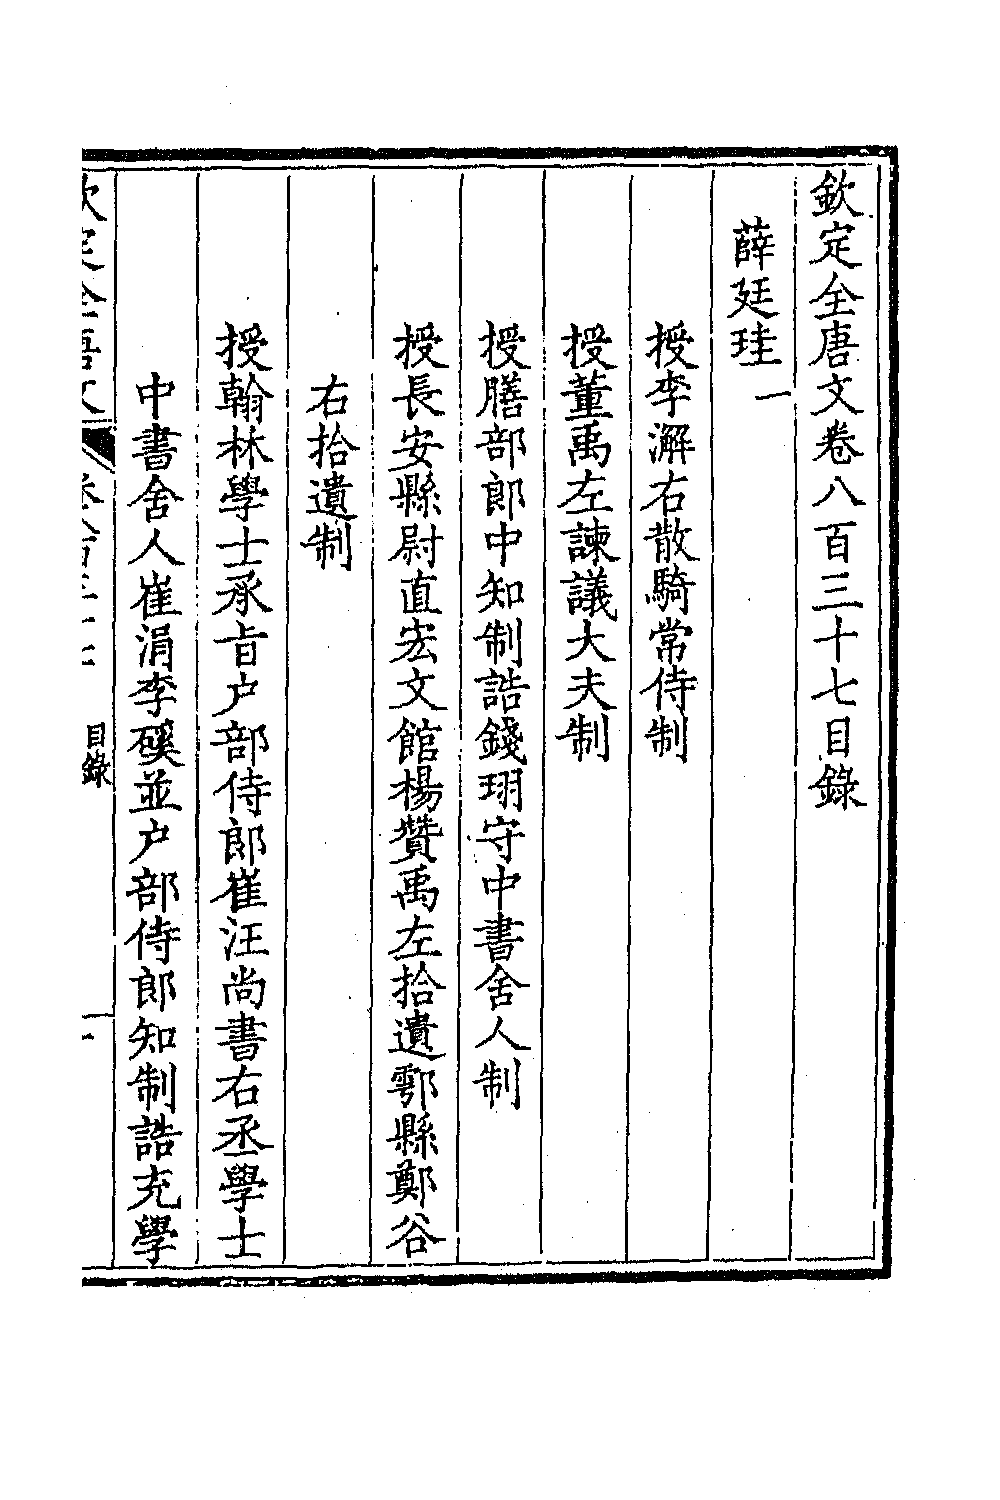 欽定全唐文卷八百三十七目錄
薛廷珪一
授李澥右散騎常侍制
授董禹左諫議大夫制
授膳部郎中知制誥錢珝守中書舍人制
授長安縣尉直宏文館楊贊禹左拾遺鄠縣鄭谷
右拾遺制
授翰林學士承旨户部侍郎崔汪尚書右丞學士
中書舍人崔涓李磎並户部侍郎知制誥充學
欽定全唐文 卷八百三十七 目錄 一